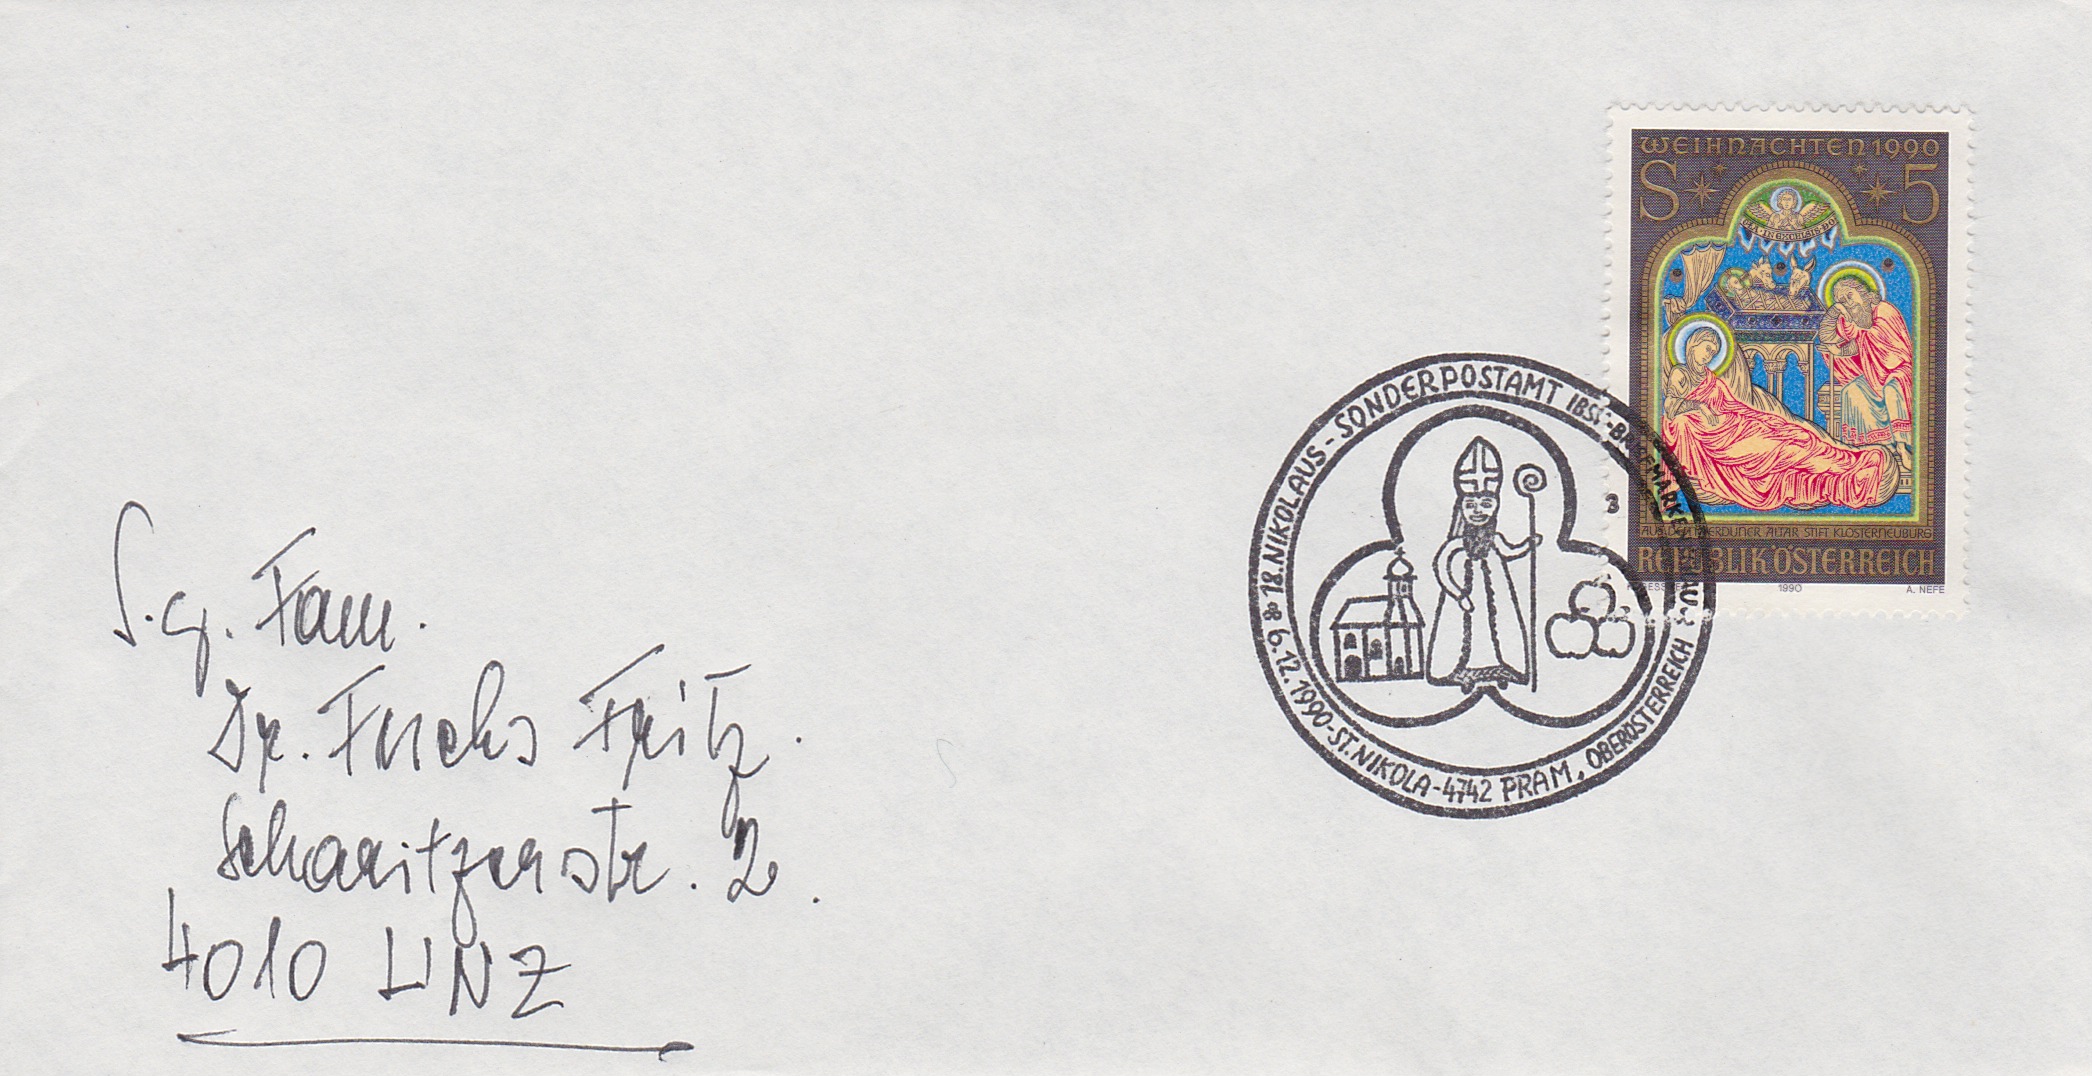 WEIHNACHTEN 1990
S 5
IN EXCELSIS
VERDUNER ALTAR STIFT KLOSTERNEUBURG
REPUBLIK ÖSTERREICH
1990 A. NEFE
18. NIKOLAUS - SONDERPOSTAMT
3
6.12.1990 - ST. NIKOLA - 4742 PRAM, OBERÖSTERREICH
S.g. Fam.
Dr. Fuchs Fritz.
Scharitzerstr. 2.
4010 LINZ